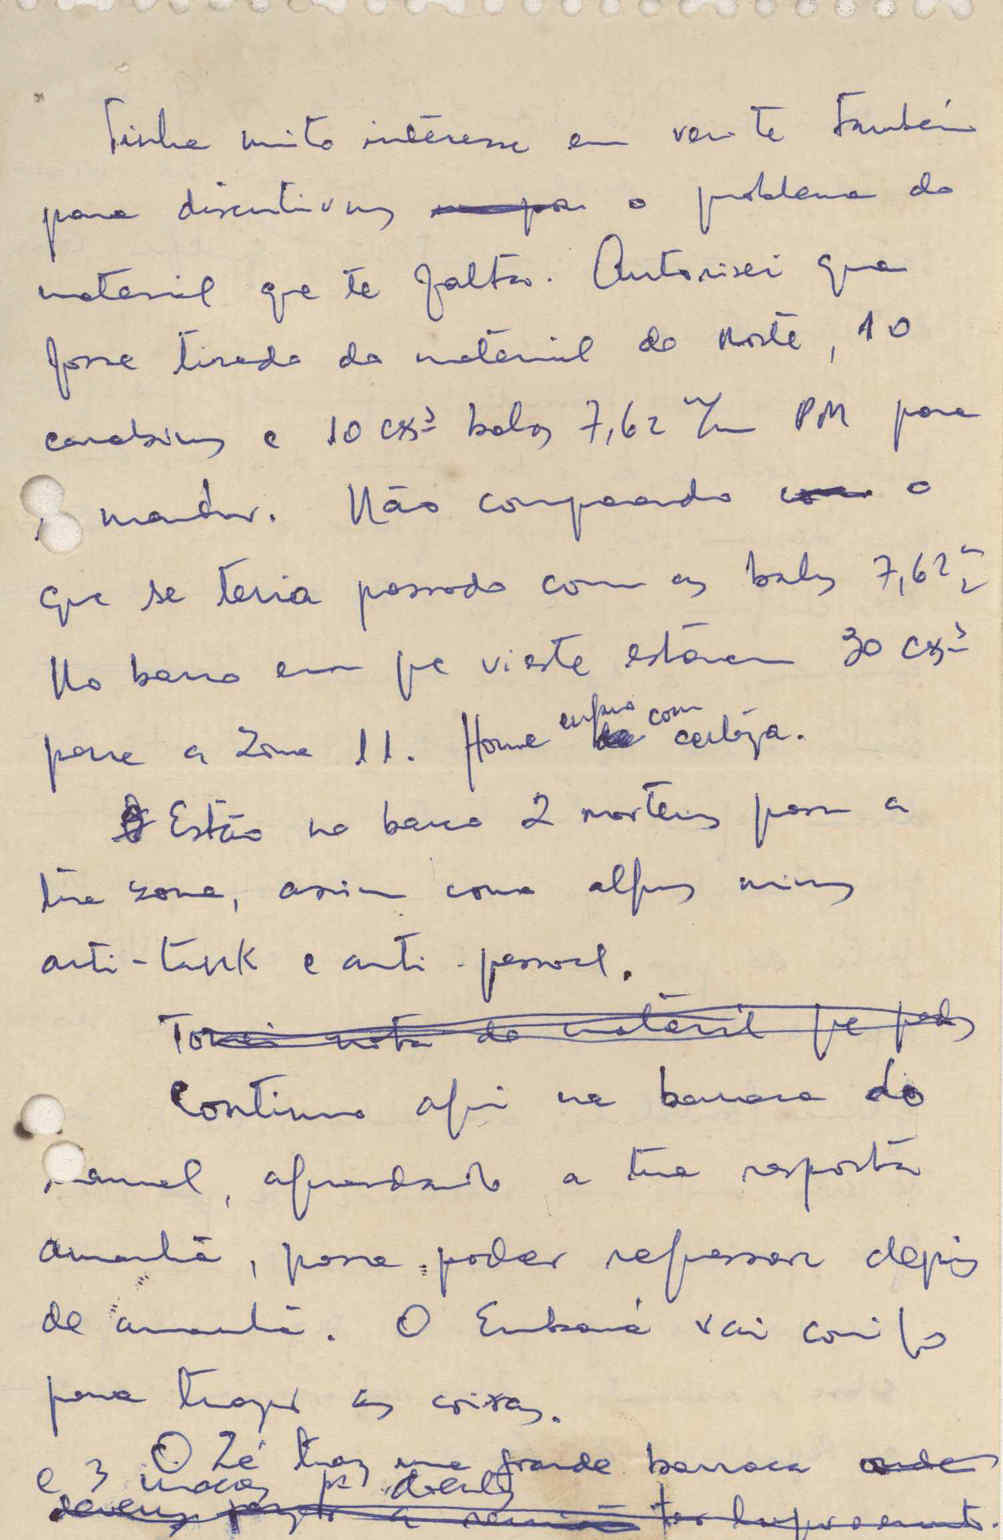 Tinha muito interesse em ver-te também
para discutirmos o problema do
material que te falta. Autorisei que
fosse tirado do material do Norte, 10
carabinas e 10 cxs balas 7,62 m/m PM para
mandar. Não compreendo o
que se teria passado com as balas 7,62 m/m
No barco em que vieste estavam 30 cxs
para a Zona 11. Houve engano com certeza.
Estão no barco 2 morteiros para a
tua zona, assim como algumas minas
anti-tank e anti-pessoal.
Tomei nota do material que pedes
Continuo aqui na barraca do
Manuel, aguardando a tua resposta
amanhã, para poder regressar depois
de amanhã. O Embaná vai contigo
para trazer as coisas.
O Zé traz uma grande barraca onde
e 3 macas pª doentes